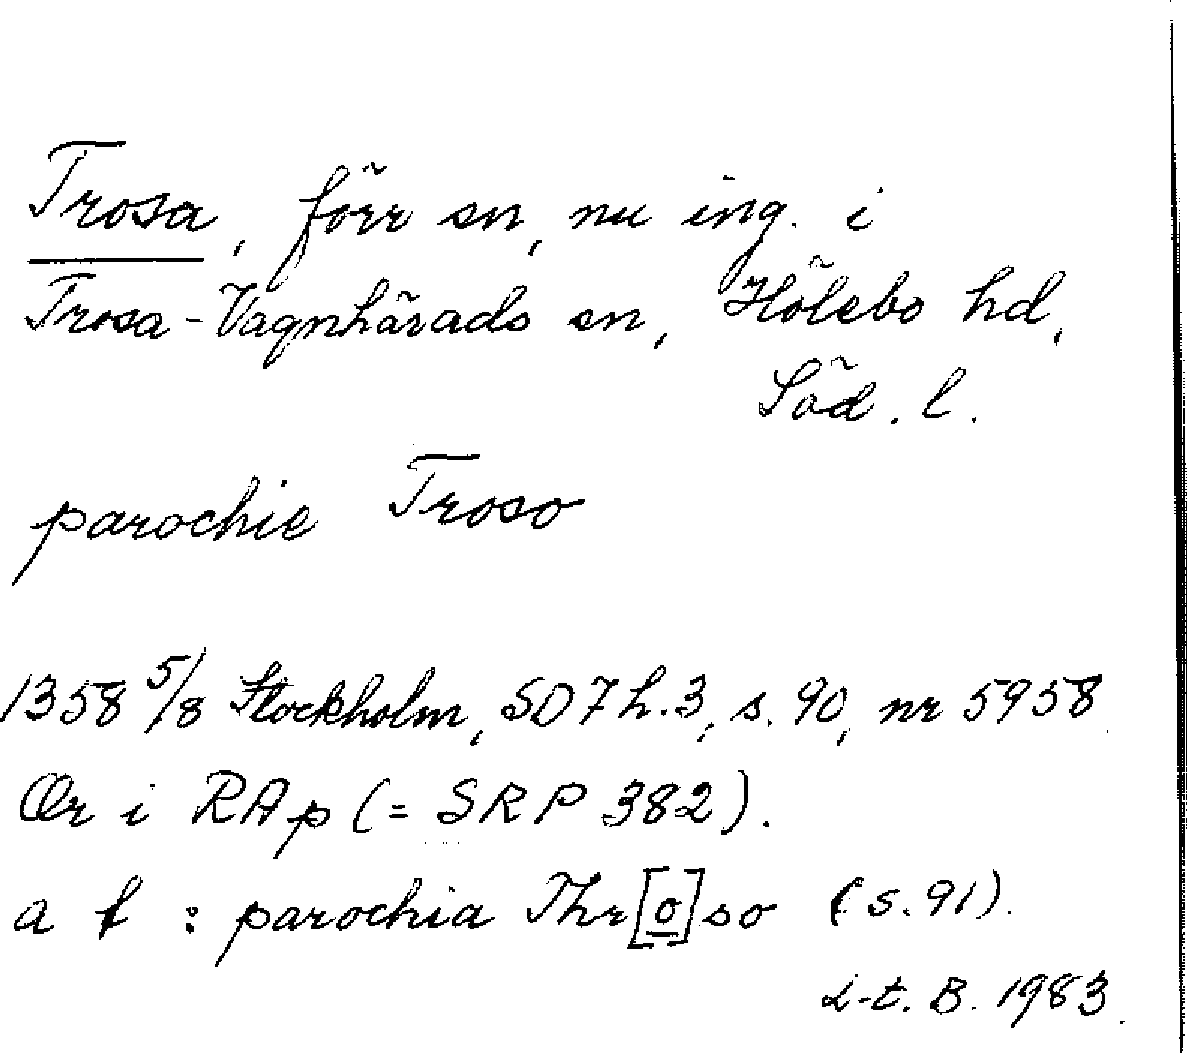 Trosa, förr sn, nu ing. i
Trosa-Vagnhärads sn, Hölebo hd,
Söd. l.
parochie Troso
1358 5/8 Stockholm, SD 7 h. 3, s. 90, nr 5958.
Or i RAp (= SRP 382).
a t : parochia Thr[o]so (s. 91).
L-t. B. 1983.